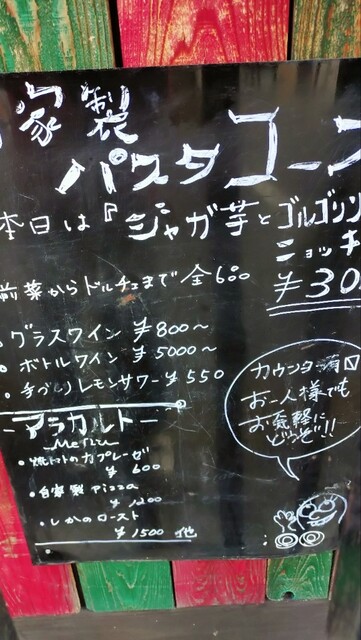 自家製
パスタコース
本日は『ジャガ芋とゴルゴンゾ
ニョッキ
前菜からドルチェまで 全6品
¥30
・グラスワイン ¥800〜
・ボトルワイン ¥5000〜
・手づくりレモンサワー ¥550
カウンター有ロ
お一人様でも
お気軽に
どうぞ!!
-アラカルト-
Menu
・焼トマトのカプレーゼ
¥600
・自家製 Pizza
¥1200
・しかのロースト
¥1500 他